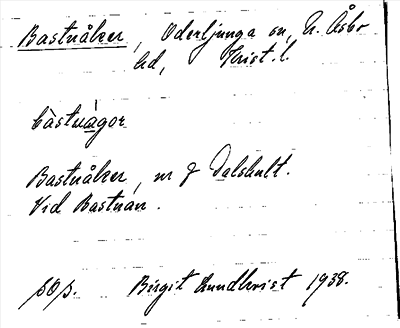 Bastuåker, Oderljunga sn, N. Åsbo
hd, Krist. l.
bàstuágor
Bastuåker, nr 7 Dalshult.
Vid Bastuån.
Birgit Lundkvist 1938.